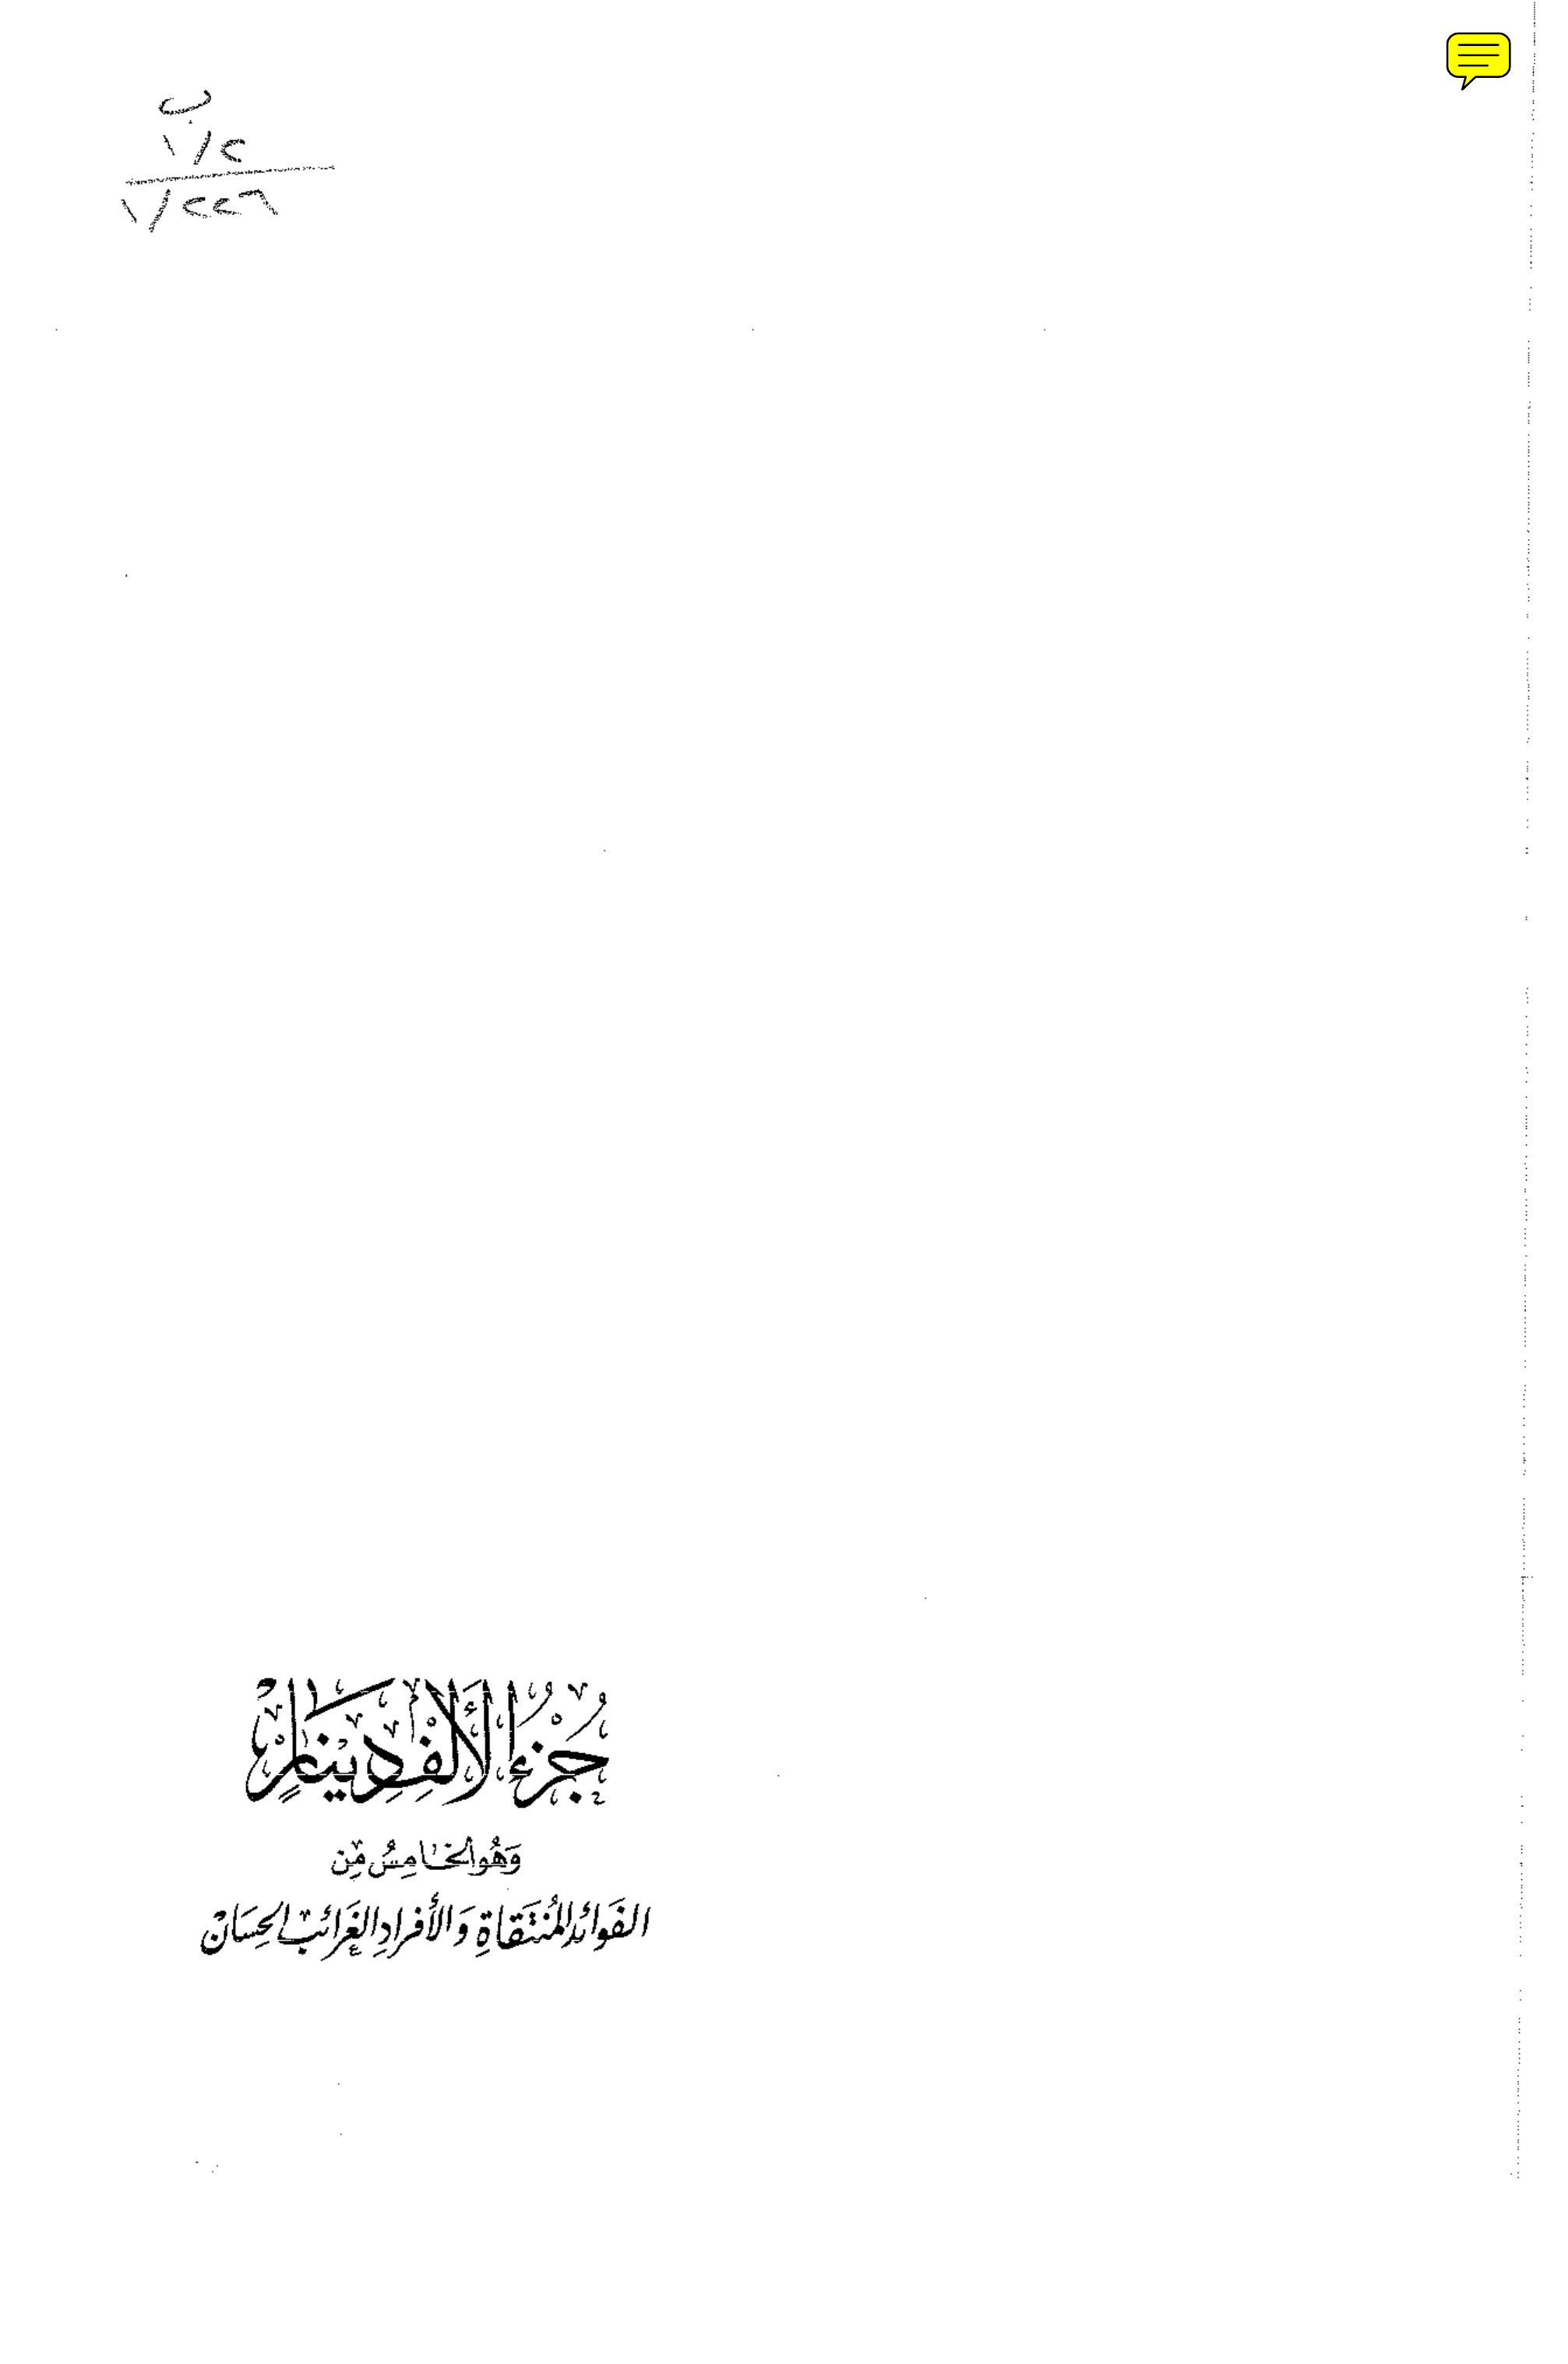 ب
١/٢
١/٢٢٦
جُزْءُ الأَلْفِ دِينَارٍ
وَهُوَ الخَامِسُ مِنَ
الفَوَائِدِ المُنْتَقَاةِ وَالأَفْرَادِ الغَرَائِبِ الحِسَانْ